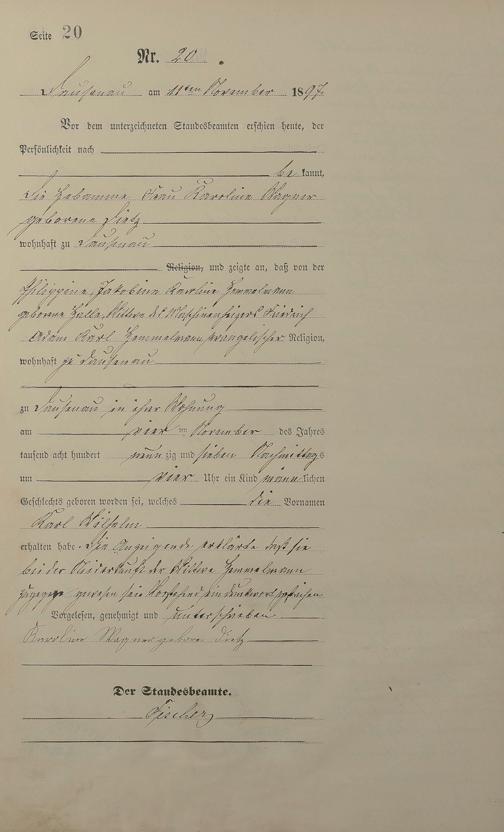 Seite 20
Nr. 20.
Dausenau am 11ten November 1897
Vor dem unterzeichneten Standesbeamten erschien heute, der
Persönlichkeit nach
be kannt,
die Hebamme, Frau Karoline Wagner
geborene Dietz
wohnhaft zu Dausenau
Religion, und zeigte an, daß von der
Philippine Jakobine Karoline Hemmelmann
geborene Halle, Wittwe des Maschinenheizers Friedrich
Adam Karl Hemmelmann, evangelischer Religion,
wohnhaft zu Dausenau
zu Dausenau in ihrer Wohnung
am vier ten November des Jahres
tausend acht hundert neun zig und sieben Nachmittags
um vier Uhr ein Kind männ lichen
Geschlechts geboren worden sei, welches die Vornamen
Karl Wilhelm
erhalten habe. Die Anzeigende erklärte daß sie
bei der Niederkunft der Wittwe Hemmelmann
zugegen gewesen sei.
Vorgelesen, genehmigt und unterschrieben
Karoline Wagner geborne Dietz
Der Standesbeamte.
Fischer